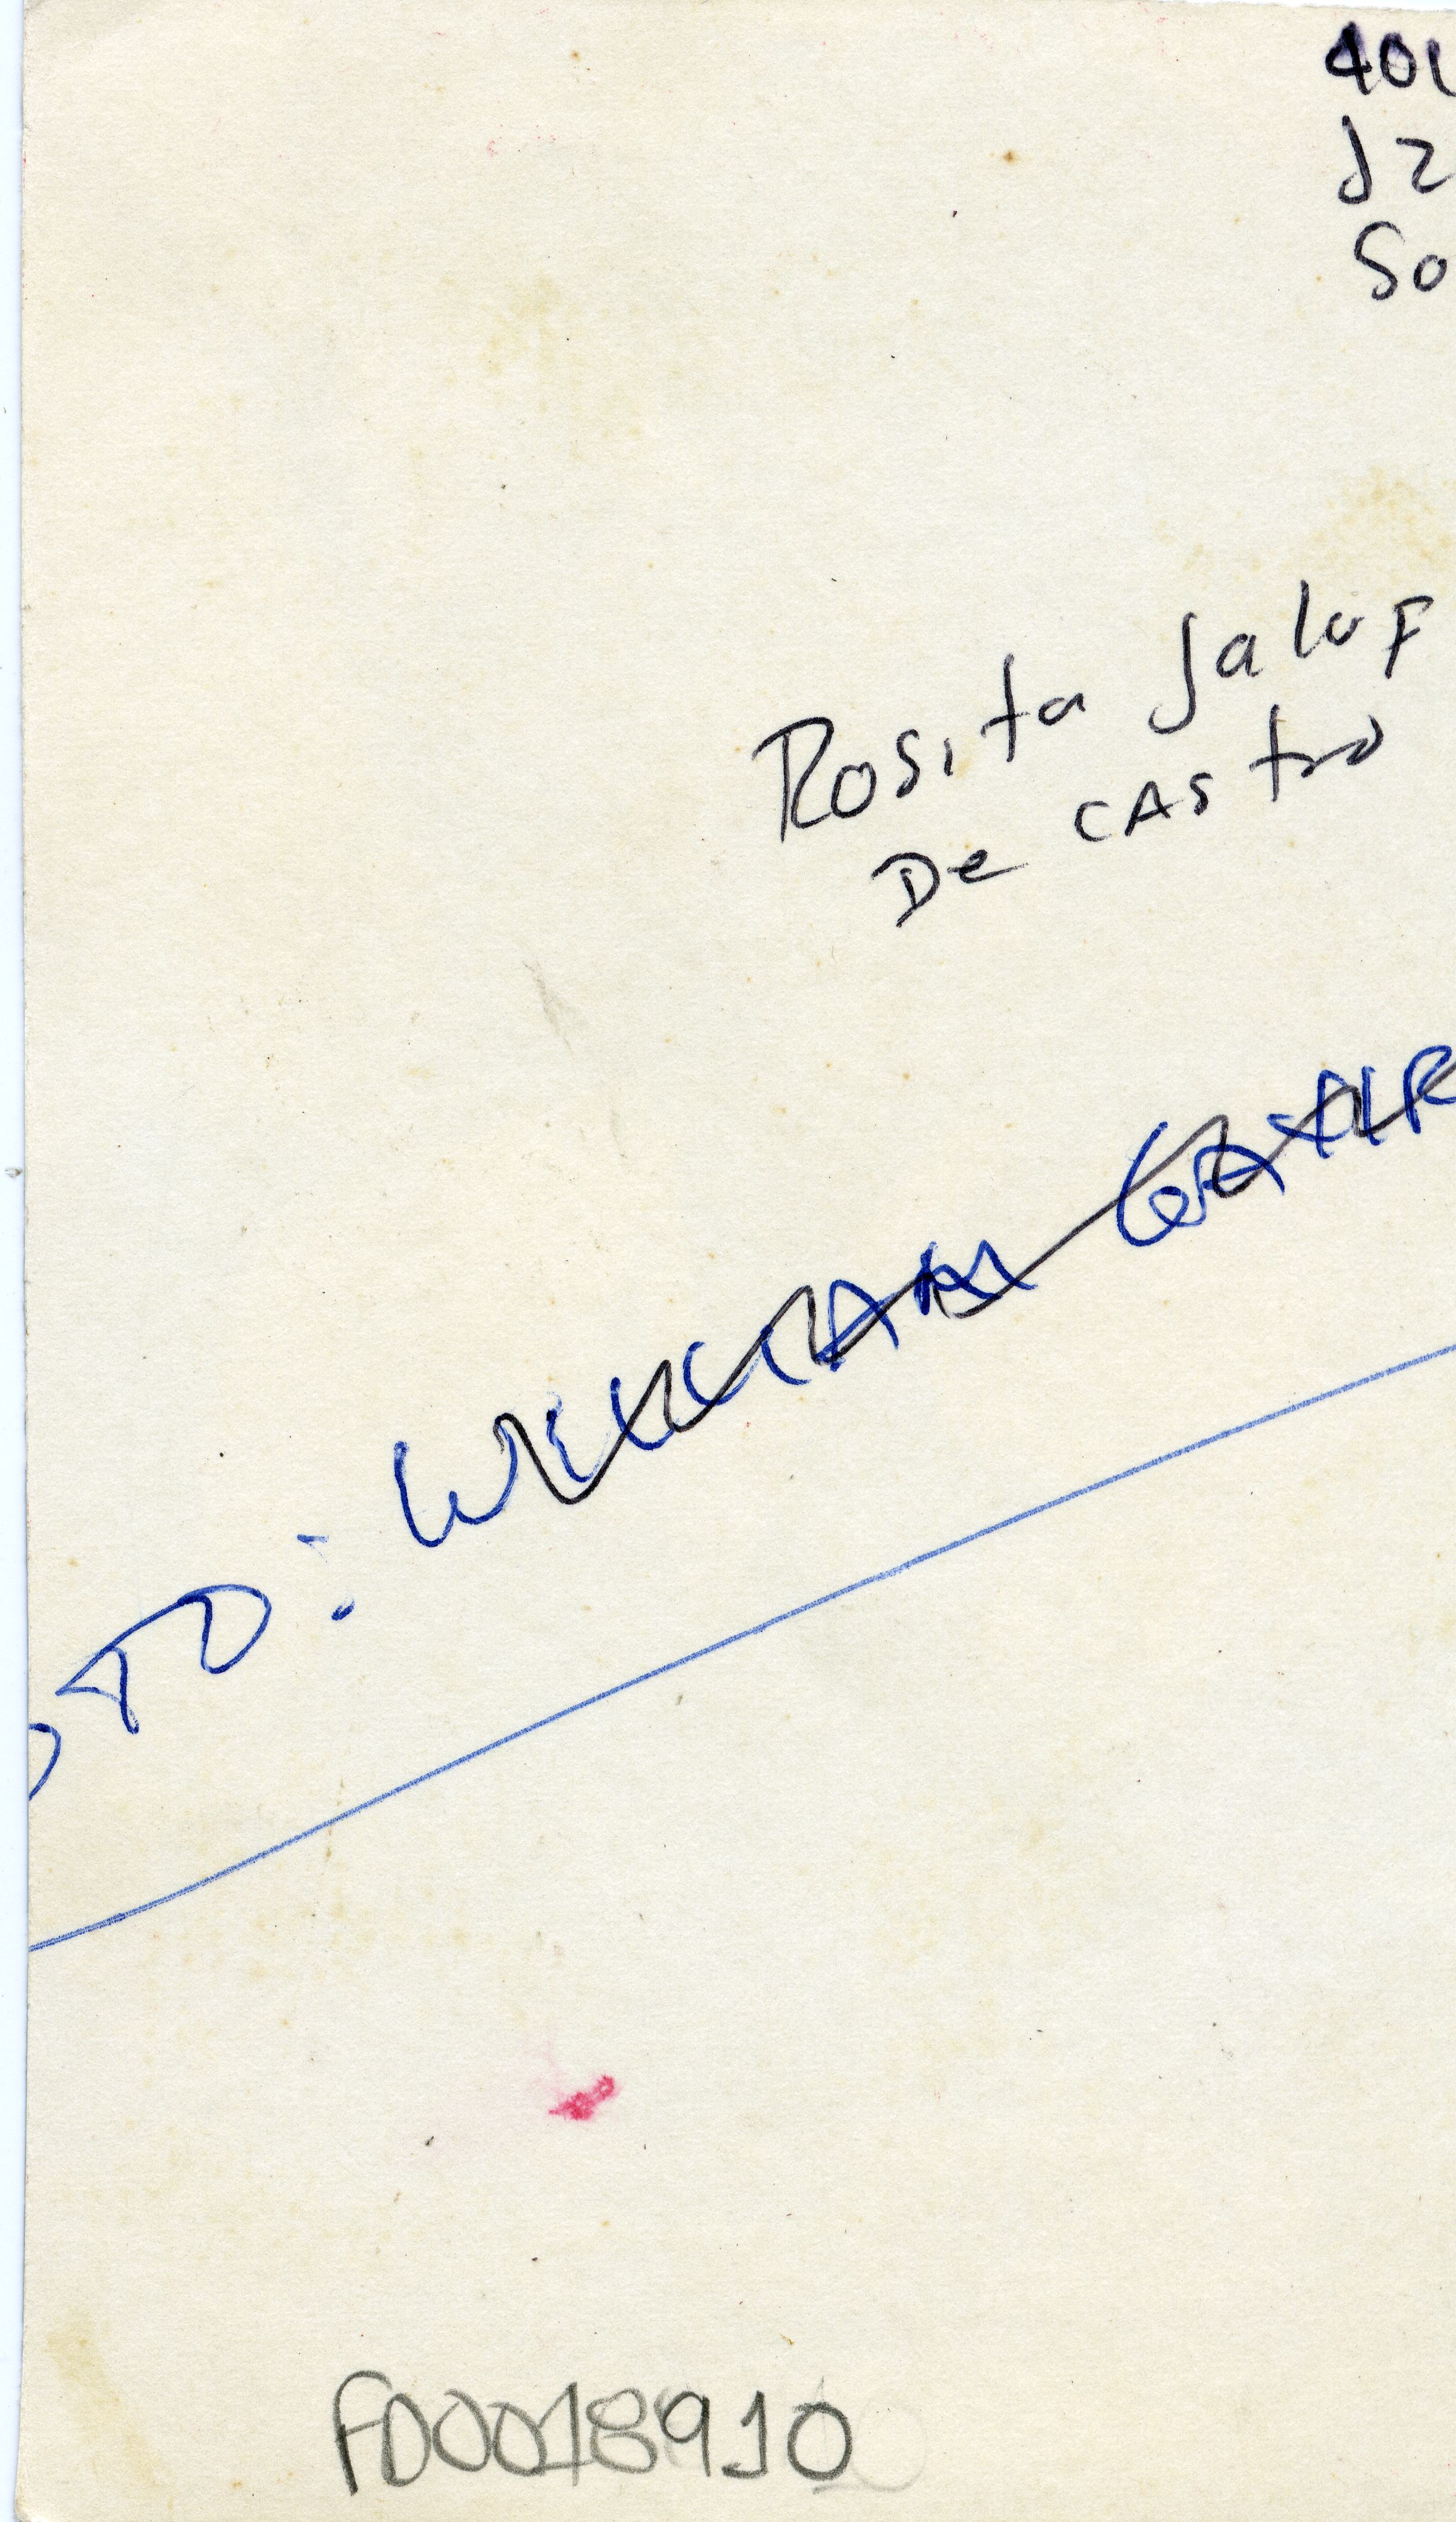 401
J2
So
Rosita Jaluf
De CAStro
OTO: WILLIAM
F00018910